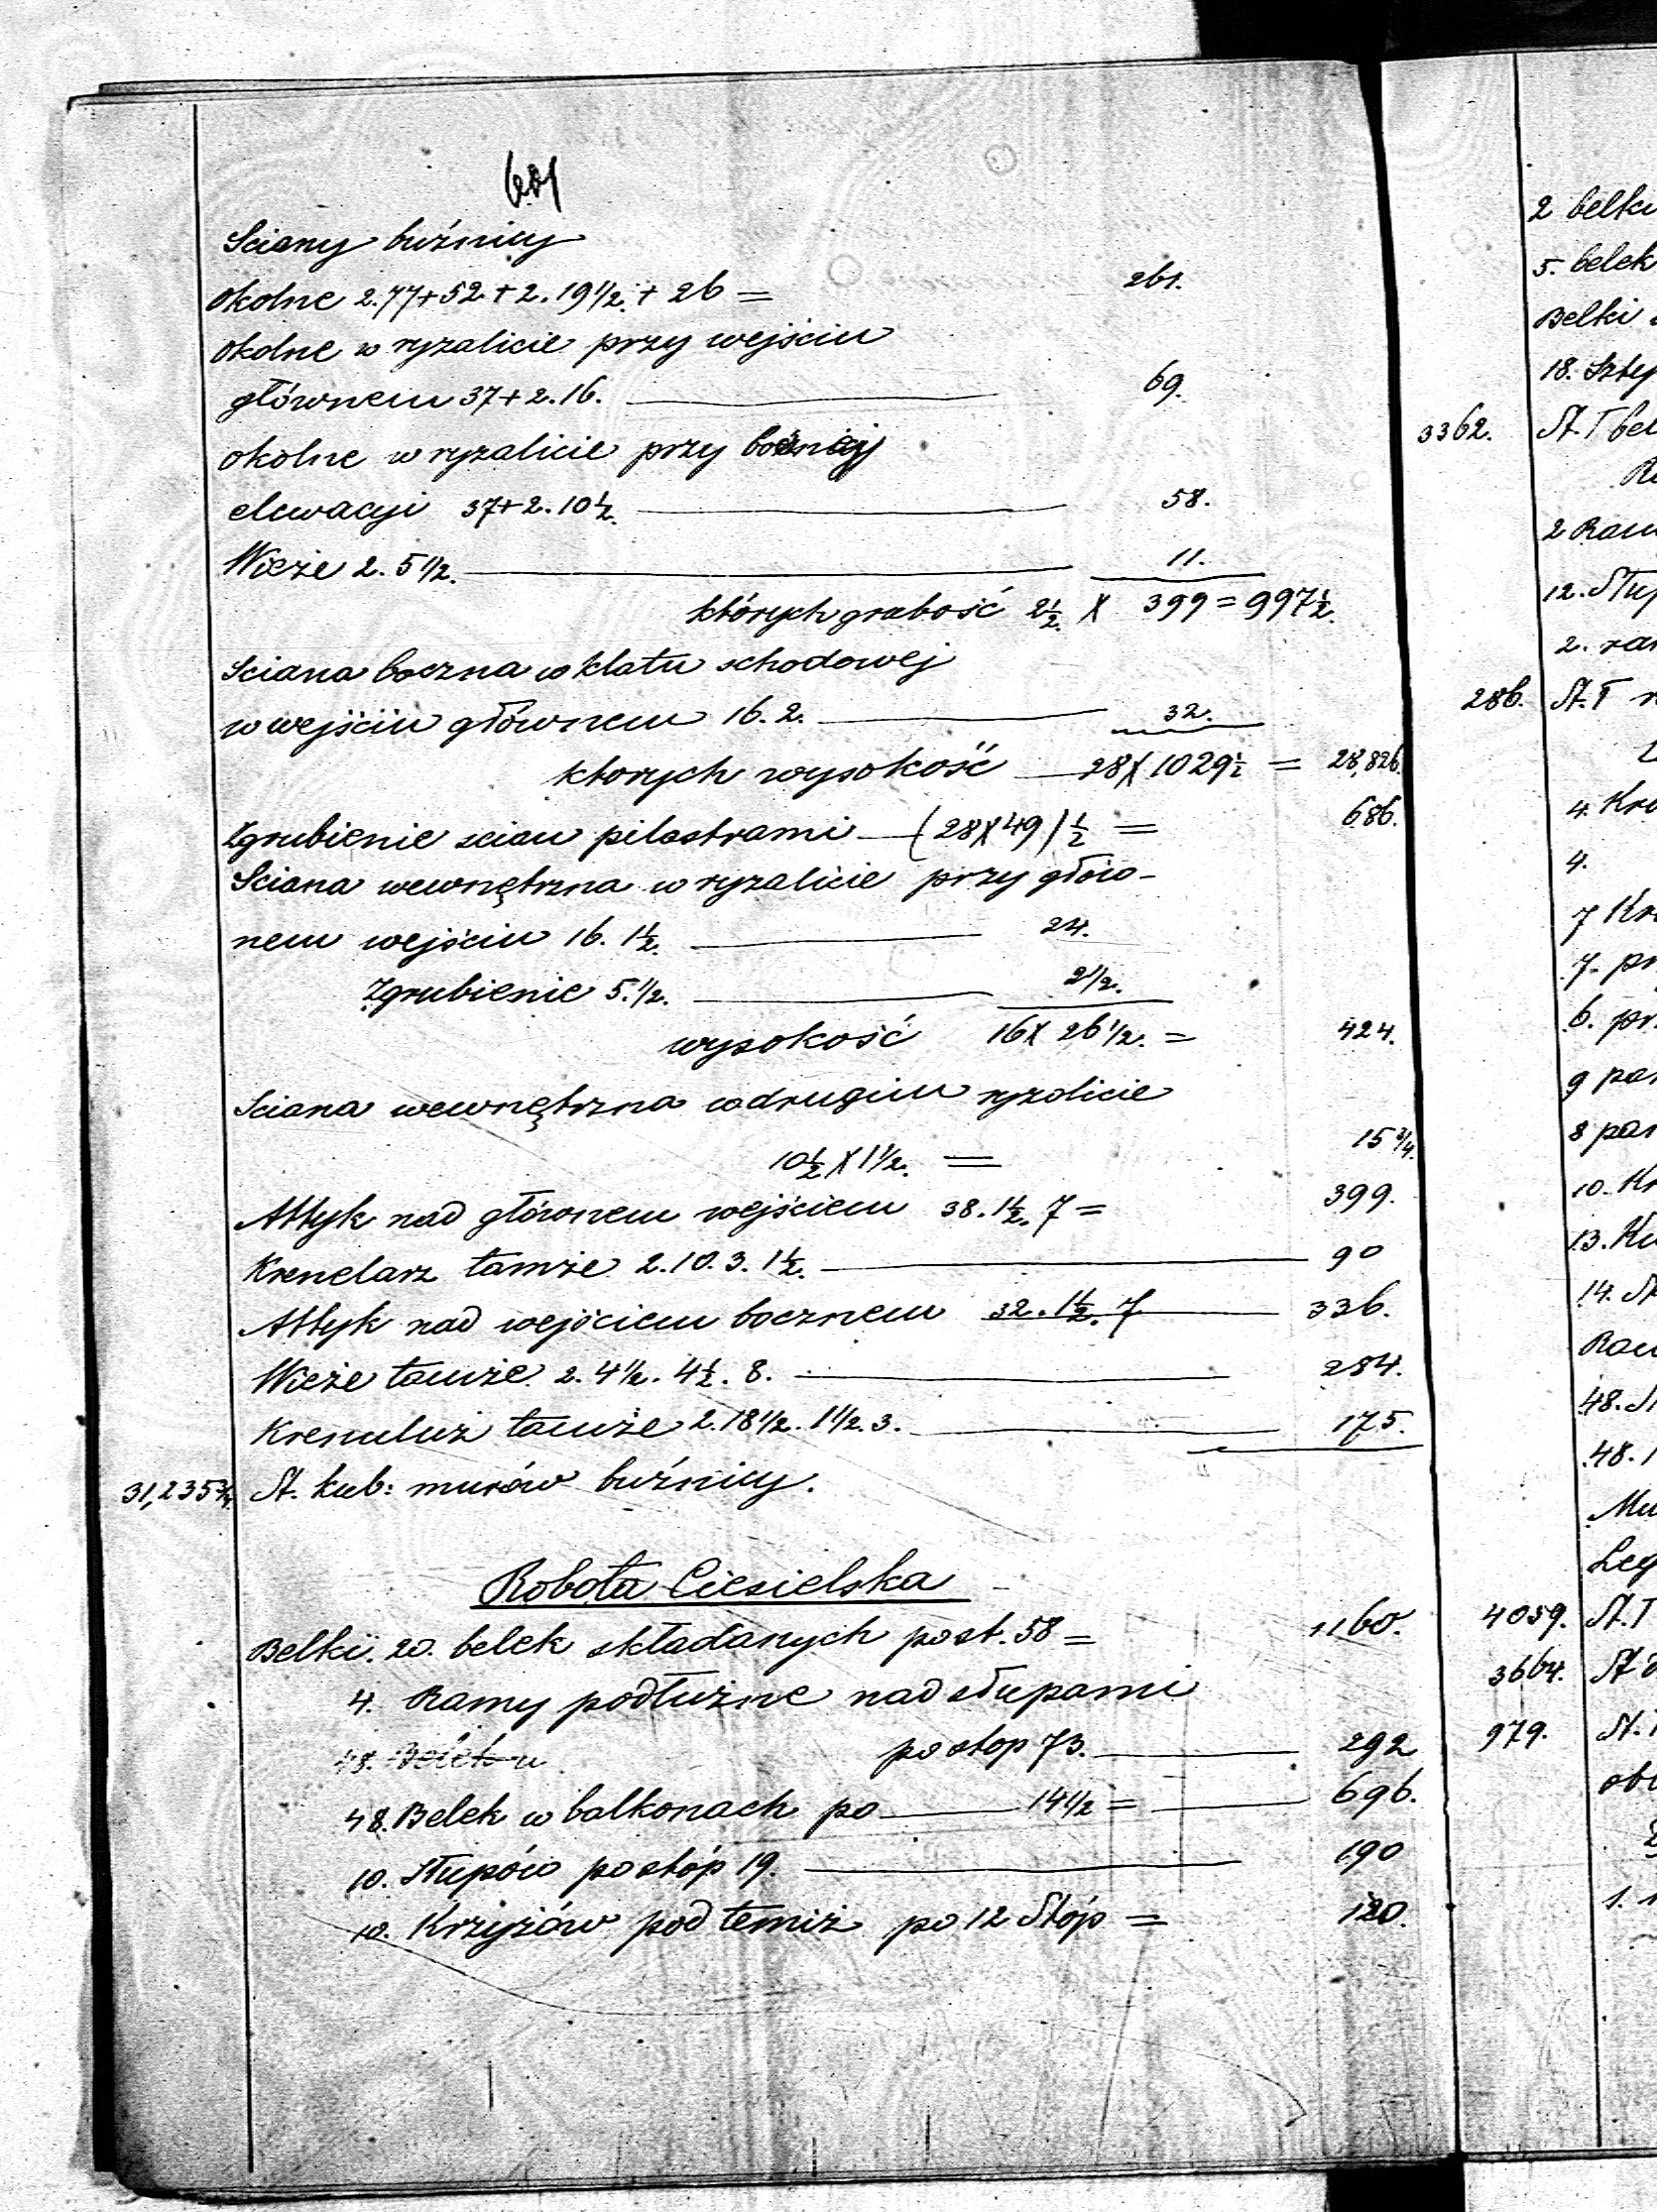 Sciany buźnicy
Okolne 2.77+52+2.19 1/2.+26 = 261.
Okolne w ryzalicie przy wejściu
głównem 37+2.16. 69.
okolne w ryzalicie przy bocznicy
elewacyi 37+2.10 1/2. 58.
Wieże 2.5 1/2. 11.
których grubość 2 1/2. X 399 = 997 1/2.
Sciana boczna w klatu schodowej
w wejściu głównem 16.2. 32.
ktorych wysokość 28 X 1029 1/2 = 28,826.
Zgrubienie scian pilastrami (28X49) 1/2 = 686.
Sciana wewnętrzna w ryzalicie przy głów-
nem wejściu 16. 1 1/2. 24.
Zgrubienie 5. 1/2. 2 1/2.
wysokość 16 X 26 1/2. = 424.
Sciana wewnętrzna w drugim ryzalicie
10 1/2 X 1 1/2. = 15 3/4.
Attyk nad głównem wejściem 38. 1 1/2. 7 = 399.
Krenelarz tamże 2.10.3. 1 1/2. 90
Attyk nad wejściem bocznem 32. 1 1/2. 7 336.
Wieże tamże 2. 4 1/2. 4 1/2. 8. 284.
Krenuluż tamże 2.18 1/2. 1 1/2. 3. 175.
31,235 3/4. St. kub: murów buźnicy.
Robota Ciesielska
Belki. 20. belek składanych po st. 58 = 1160.
4. Ramy podłużne nad słupami
48. Belek w po stop 73. 292
48. Belek w balkonach po 14 1/2 = 696.
10. Słupów po stóp 19. 190
10. Krzyżów pod temiż po 12 Stóp = 120.
2 belki
5. belek
Belki
18.
3362. St. T bel
2 Ram
12. Słup
2. ram
286. St. T
4.
4.
7
7.
6.
9
8
10.
13.
14.
48.
48.
4059. St. T
3664. St
979. St.
1.